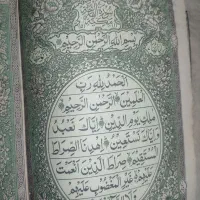 بِسْمِ اللهِ الرَّحْمٰنِ الرَّحِيْمِ
اَلْحَمْدُ لِلّٰهِ رَبِّ
الْعٰلَمِيْنَ الرَّحْمٰنِ الرَّحِيْمِ
مٰلِكِ يَوْمِ الدِّيْنِ اِيَّاكَ نَعْبُدُ
وَاِيَّاكَ نَسْتَعِيْنُ اِهْدِنَا الصِّرَاطَ
الْمُسْتَقِيْمَ صِرَاطَ الَّذِيْنَ اَنْعَمْتَ
عَلَيْهِمْ غَيْرِ الْمَغْضُوْبِ عَلَيْهِمْ